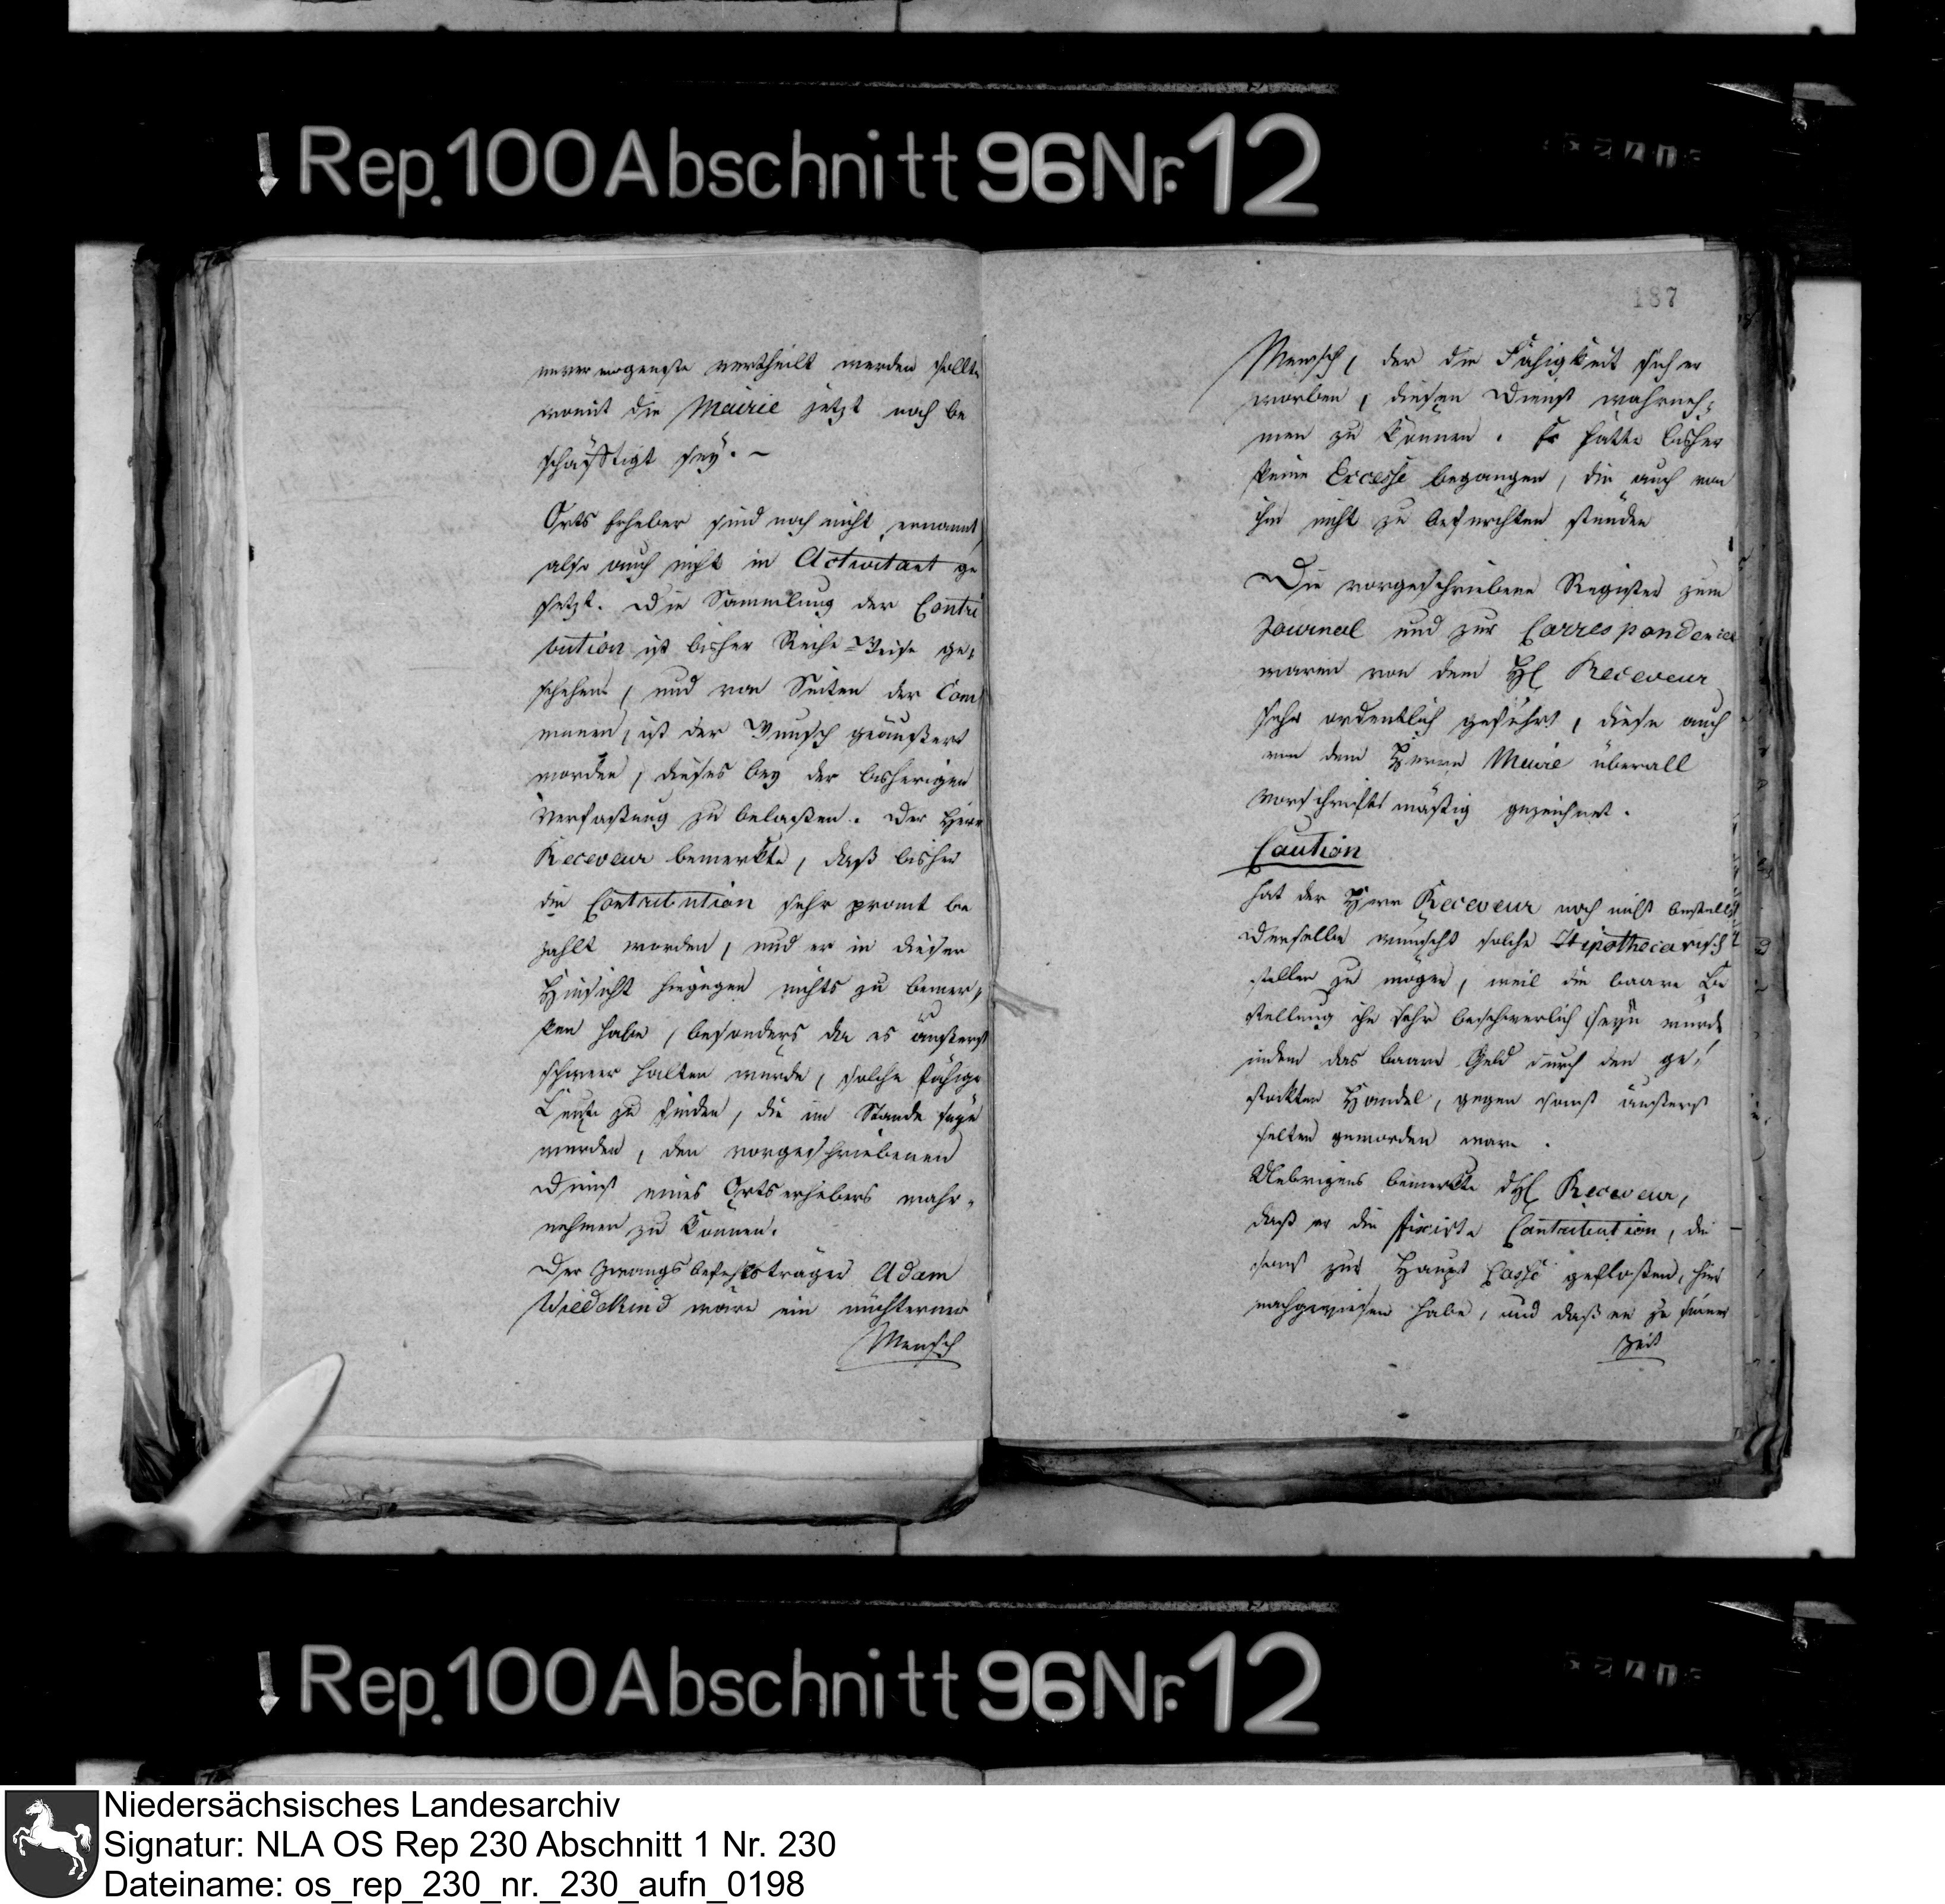 Rep. 100 Abschnitt 96 Nr. 12
unvermogenste vertheilt werden sollte
womit die Mairie jetzt noch be
schäfftigt sey. –
Orts Erheber sind noch nicht ernannt,
also auch nicht in Activitaet ge
setzt. Die Sammlung der Contri
bution ist bisher Reihe-Weise ge,
schehen, und von Seiten der Com
munen, ist der Wunsch geäußert
worden, dieses bey der bisherigen
Verfaßung zu belaßen. Der Herr
Receveur bemerkte, daß bisher
die Contribution sehr promt be
zahlt worden, und er in dieser
Hinsicht hingegen nichts zu bemer,
ken habe, besonders da es äußerst
schwer halten würde, solche fähige
Leute zu finden, die im Stande seyn
würden, den vorgeschriebenen
Dienst eines Ortserhebers wahr,
nehmen zu können.
Der Zwangsbefehlsträger Adam
Wiedekind wäre ein nüchterner
Mensch
187
Mensch, der die Fähigkeit sich er
worben, diesen Dienst wahrneh,
men zu können. Er hatte bisher
keine Excesse begangen, die auch von
ihm nicht zu befürchten stünden
Die vorgeschriebene Register zum
Journal und zur Correspondence
waren von dem H Receveur
sehr ordentlich geführt, diese auch
von dem Herrn Maire überall
vorschriftsmäßig gezeichnet.
Caution
hat der Herr Receveur noch nicht bestellt
Derselbe wünscht solche Hipothecarisch
stellen zu mögen, weil die baare Be
stellung ihm sehr beschwerlich seyn würde
indem das baare Geld durch den ge,
stockten Handel, gegen sonst äußerst
selten geworden ware.
Uebrigens bemerkte dH Receveur,
daß er die fixirte Contribution, die
sonst zur Haupt Casse geflossen, hier
nachgewiesen habe, und daß er zu seiner
Zeit
Rep. 100 Abschnitt 96 Nr. 12
Niedersächsisches Landesarchiv
Signatur: NLA OS Rep 230 Abschnitt 1 Nr. 230
Dateiname: os_rep_230_nr._230_aufn_0198